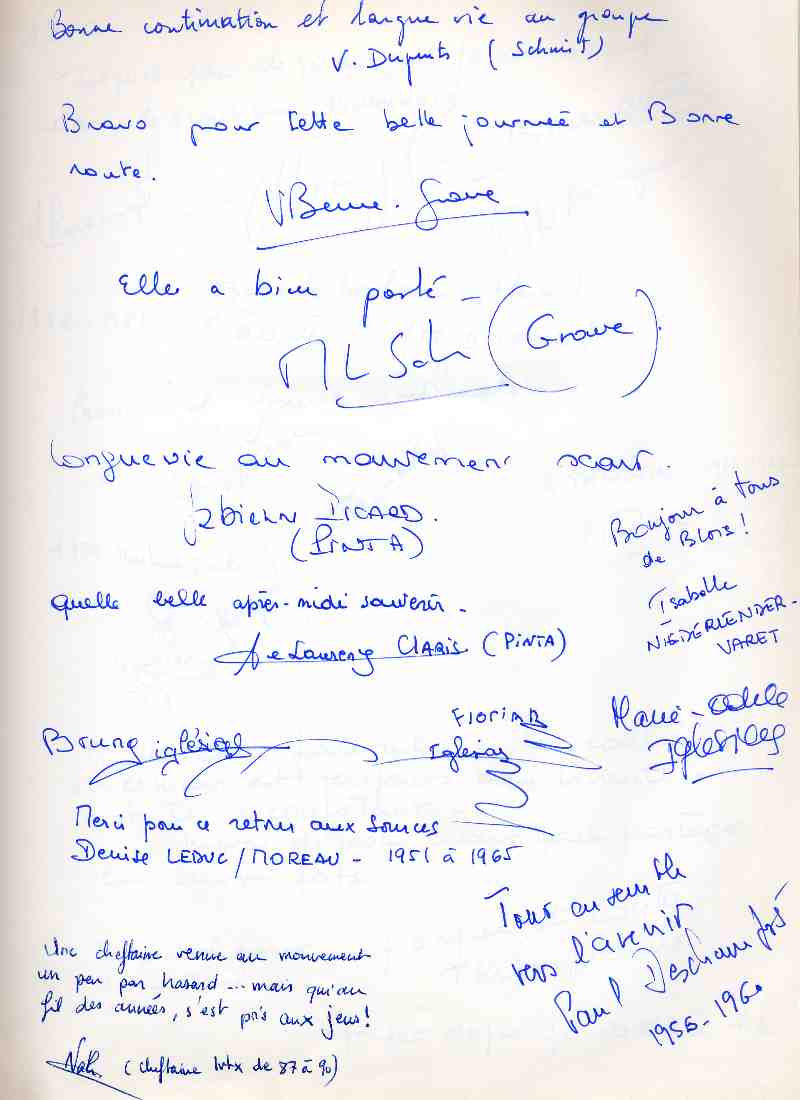 Bonne continuation et longue vie au groupe
V. Duponts (Schmist)
Bravo pour cette belle journée et Bonne
route.
Elle a bien porté -
ML (Grove)
Longue vie au mouvement scout.
PICARD.
(PINTA)
Bonjour à tous
de BLOIS!
Isabelle
NIEDERLENDER-
VARET
Quelle belle après-midi souvenir.
CLARIS (PINTA)
Bruno iglésias
Florian
Iglésias
Marie-Odile
Iglésias
Merci pour ce retour aux sources
Denise LEDUC/MOREAU - 1951 à 1965
Tous ensemble
vers l'avenir
Paul Deschamps
1956-1960
Une cheftaine venue au mouvement
un peu par hasard... mais qu'au
fil des années, s'est pris aux jeux!
(cheftaine de 87 à 90)